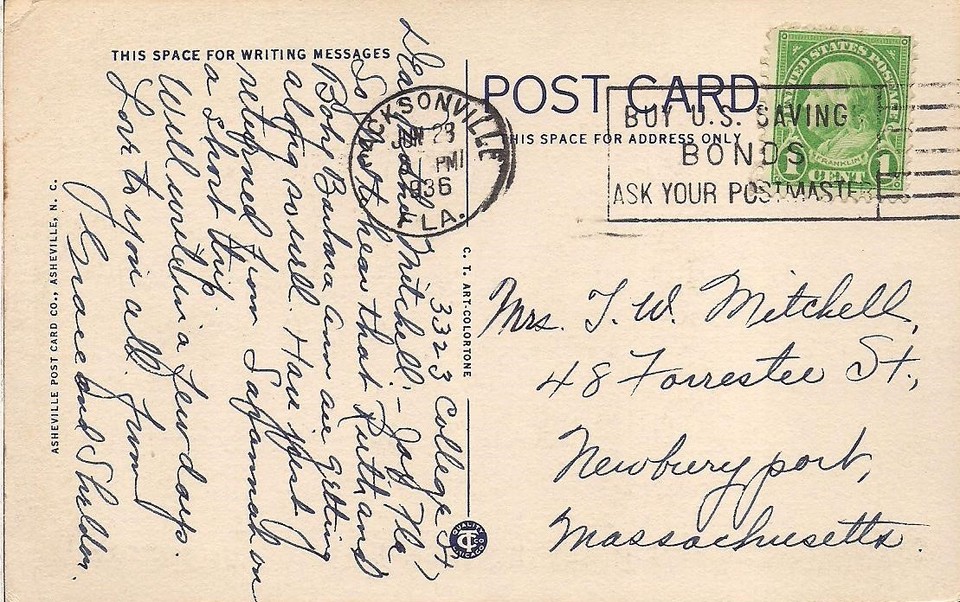 THIS SPACE FOR WRITING MESSAGES
POST CARD
THIS SPACE FOR ADDRESS ONLY
UNITED STATES POSTAGE
FRANKLIN
1 CENT 1
BUY U.S. SAVING
BONDS
ASK YOUR POSTMASTER
JACKSONVILLE
23
1 PM
1936
FLA.
3323 College St,
Jax Fla
Dear Mitchell:-
So glad to hear that Ruth and
Baby Barbara Ann are getting
along so well. Have just
returned from Savannah on
a short trip.
Will write in a few days.
Love to you all. from
Grace and Sheldon.
Mrs. T. W. Mitchell,
48 Forrester St.,
Newburyport,
Massachusetts.
ASHEVILLE POST CARD CO., ASHEVILLE, N. C.
C. T. ART-COLORTONE
QUALITY
CT
CHICAGO